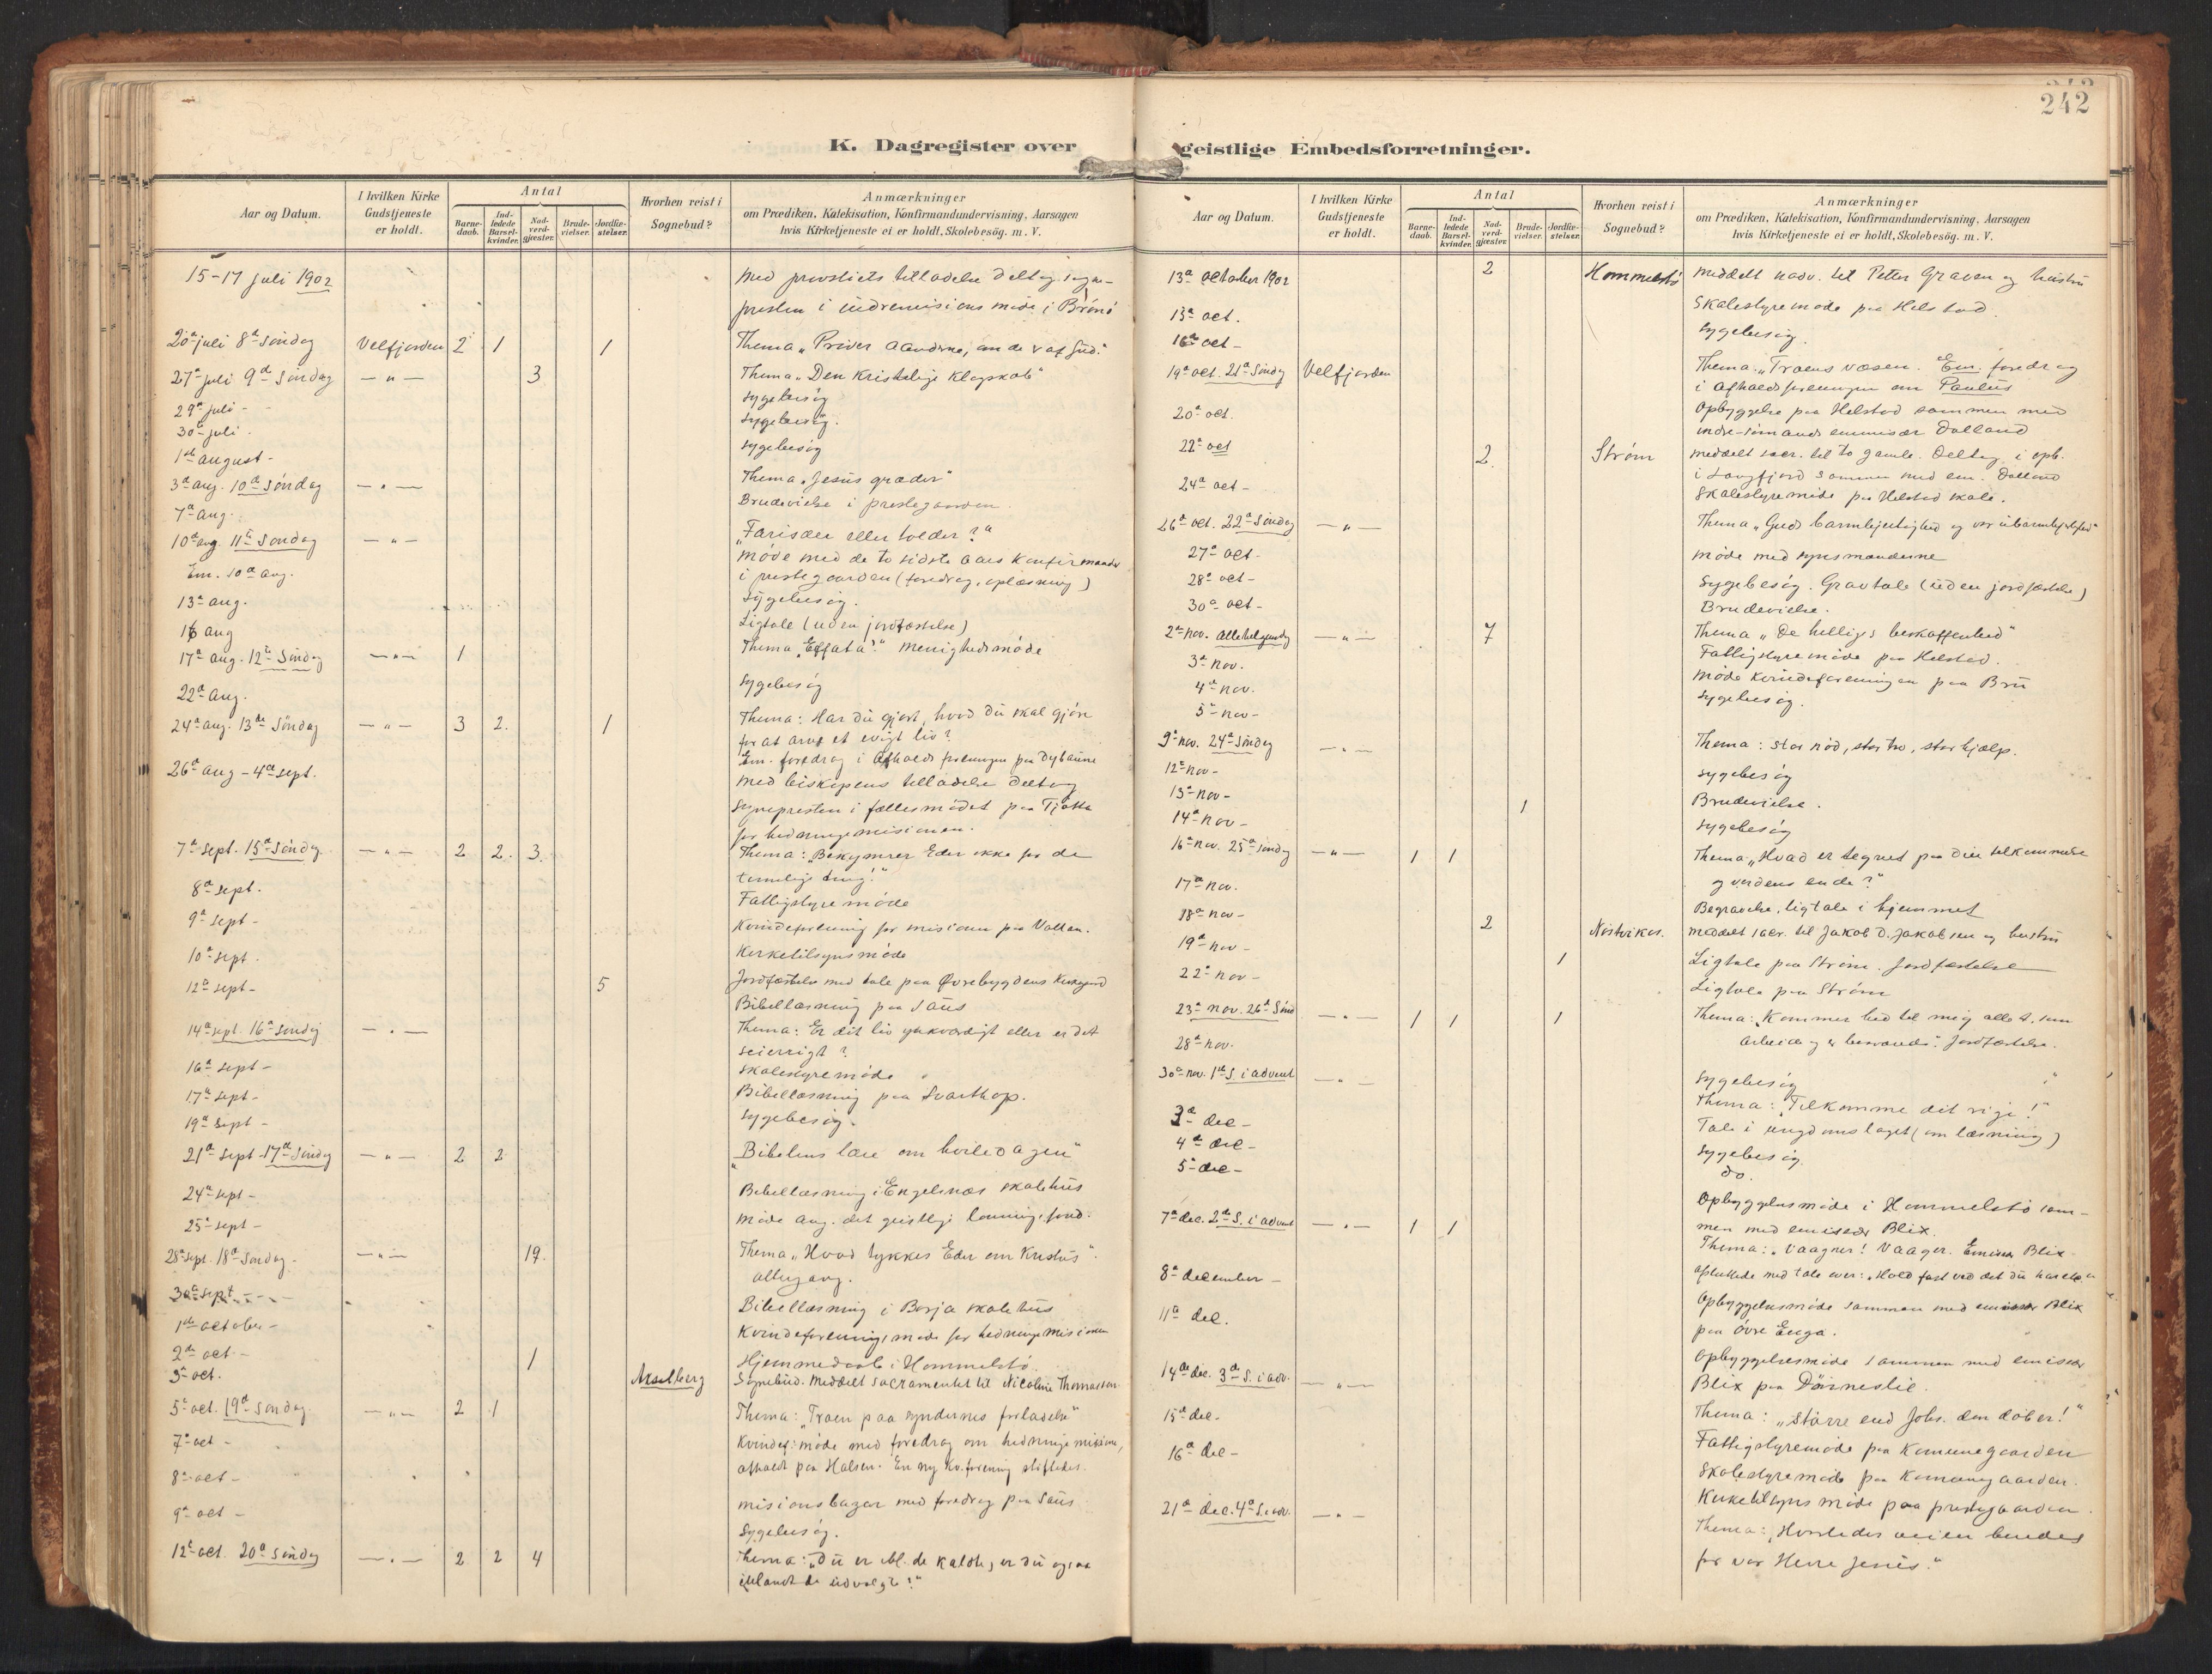 242
K. Dagregister over
Aar og Datum.
I hvilken Kirke Gudstjeneste er holdt.
Antal
Barne-daab.
Ind-ledede Barsel-kvinder.
Nad-verd-gjæster.
Brude-vielser.
Jordfæ-stelser.
Hvorhen reist i Sognebud?
Anmærkninger
om Prædiken, Katekisation, Konfirmandundervisning, Aarsagen
hvis Kirketjeneste ei er holdt, Skolebesøg. m. V.
15-17 juli 1902 Med provstiets tilladelse deltog sogne-
presten i indremisions møde i Brønø
20de juli 8de Søndag Velfjorden 2 1 1 Thema "Prøver Aanderne, om de er af Gud."
27de juli 9de Søndag -"- 3 Thema "Den Kristelige Klogskab"
29de juli - Sygebesøg
30de juli. Sygebesøg.
1ste august - Sygebesøg
3de aug. 10de Søndag -"- Thema "Jesus græder"
7de aug. Brudevielse i prestegaarden.
10de aug. 11te Søndag -"- "Farisæer eller tolder?"
Em. 10de aug. Møde med de to sidste aars Konfirmander
i prestegaarden (foredrag, oplæsning)
13de aug. Sygebesøg.
16 aug Ligtale (uden jordfæstelse)
17de aug. 12te Søndag -"- 1 Thema "Effata!" Menighedsmøde
22de aug. Sygebesøg
24de aug. 13de Søndag -"- 3 2. 1 Thema: Har du gjort, hvad du skal gjøre
for at arve et evigt liv?
Em. foredrag i Afholdsforeningen paa
26de aug - 4de sept. Med biskopens tilladelse deltog
Sognepresten i fællesmødet paa Tjøtta
for hedningemisionen.
7de sept. 15de Søndag -"- 2 2. 3. Thema: "Bekymrer Eder ikke for de
timelige ting!"
8de sept. Fattigstyremøde
9de sept - Kvindeforening for misionen paa
10de sept. Kirketilsynsmøde
12te sept - 5 Jordfæstelse med tale paa Øvrebygdens Kirkegaard
Bibellæsning paa Saus
14de sept. 16de Søndag -"- Thema: Er dit liv ynkværdigt eller er det
seierrigt?
16de sept - Skolestyremøde
17de sept - Bibellæsning paa Svarthop.
19de sept - Sygebesøg.
21de sept - 17de Søndag -"- 2 2 "Bibelens lære om hviledagen"
24de sept - Bibellæsning i Engelsnæs skolehus
25de sept - Møde ang. det geistlige lønningsfond.
28de sept. 18de Søndag - -"- 19. Thema "Hvad tykkes Eder om Kristus".
Altergang.
30de sept. Bibellæsning i Borja skolehus
1ste october - Kvindeforeningsmøde for hedningemisionen
2den oct. - 1 Hjemmedaab i Hommelstø.
3de oct. Aaselberg Sognebud. Meddelt sacramentet til Nicoline Thomassen
5te oct. 19de Søndag. -"- 2 1 Thema: "Troen paa syndernes forladelse"
7de oct - Kvindef: møde med foredrag om hedningemisionen,
afholdt paa Halsen. En ny kv.forening stiftedes.
8de oct - misionsbazar med foredrag paa Saus
9de oct - Sygebesøg.
12te oct. 20de Søndag -"- 2 2 4 Thema: "Du er bl. de kaldte, er du ogsaa
iblandt de udvalgte?"
geistlige Embedsforretninger.
Aar og Datum.
I hvilken Kirke Gudstjeneste er holdt.
Antal
Barne-daab.
Ind-ledede Barsel-kvinder.
Nad-verd-gjæster.
Brude-vielser.
Jordfæ-stelser.
Hvorhen reist i Sognebud?
Anmærkninger
om Prædiken, Katekisation, Konfirmandundervisning, Aarsagen
hvis Kirketjeneste ei er holdt, Skolebesøg. m. V.
13de october 1902 2 Hommelstø Meddelt nadv. til Petter Graven og hustru
13de oct. Skolestyremøde paa Helstad.
16de oct - Sygebesøg.
19de oct. 21de Søndag Velfjorden Thema. "Troens væsen. Em. foredrag
i Afholdsforeningen om Paulus
20de oct. Opbyggelse paa Helstad sammen med
indre-sømands emmisær Dalland
22de oct 2. Strøm Meddelt sacr. til to gamle. Deltog i opb.
i Langfjord sammen med em. Dalland
24de oct - Skolestyremøde paa Helstad skole.
26de oct. 22de Søndag -"- Thema "Guds barmhjertighed og vor ubarmhjertighed"
27de oct - Møde med synsmændene
28de oct - Sygebesøg. Gravtale (uden jordfæstelse)
30de oct - Brudevielse.
2den nov. allehelgensdag -"- 7 Thema "De helliges beskaffenhed"
3de nov. Fattigstyremøde paa Helstad.
4de nov. Møde kvindeforeningen paa Bru
5te nov - Sygebesøg.
9de nov. 24de Søndag -"- Thema: stor nød, stor tro, stor hjælp.
12te nov - Sygebesøg
13de nov - 1 Brudevielse.
14de nov - Sygebesøg
16de nov. 25de Søndag -"- 1 1 Thema "Hvad er tegnet paa din tilkommelse
og verdens ende?"
17de nov. Begravelse, ligtale i hjemmet
18de nov - 2 Meddelt sacr. til Jakob D. Jakobsen og hustru
19de nov - 1 Ligtale paa Strøm. Jordfæstelse
22de nov - Ligtale paa Strøm
23de nov. 26de Sønd -"- 1 1 1 Thema: "Kommer hid til mig alle I, som
arbeide og er besværede". Jordfæstelse.
28de nov. Sygebesøg
30de nov. 1ste S. i advent -"- Thema: "Tilkomme dit rige!"
3de dec - Tale i ungdomslaget (om læsning)
4de dec - Sygebesøg
5te dec - do.
Opbyggelsesmøde i Hommelstø sam-
men med emisær Blix.
7de dec. 2den S. i advent -"- 1 1 Thema: "Vaagner! Vaager. Emisær Blix
afsluttede med tale over: "Hold fast ved det du har
8de december - Opbyggelsesmøde sammen med emisær Blix
paa Øvre Enga.
11te dec. Opbyggelsesmøde sammen med emisær
Blix paa
14de dec. 3de S. i adv. -"- Thema: "Større end Johs. den døber!"
15de dec. Fattigstyremøde paa Komunegaarden
16de dec - Skolestyremøde paa Komunegaarden.
Kirketilsynsmøde paa prestegaarden.
21de dec. 4de S. i adv. -"- Thema: "Hvorledes veien beredes
for vor Herre Jesus."